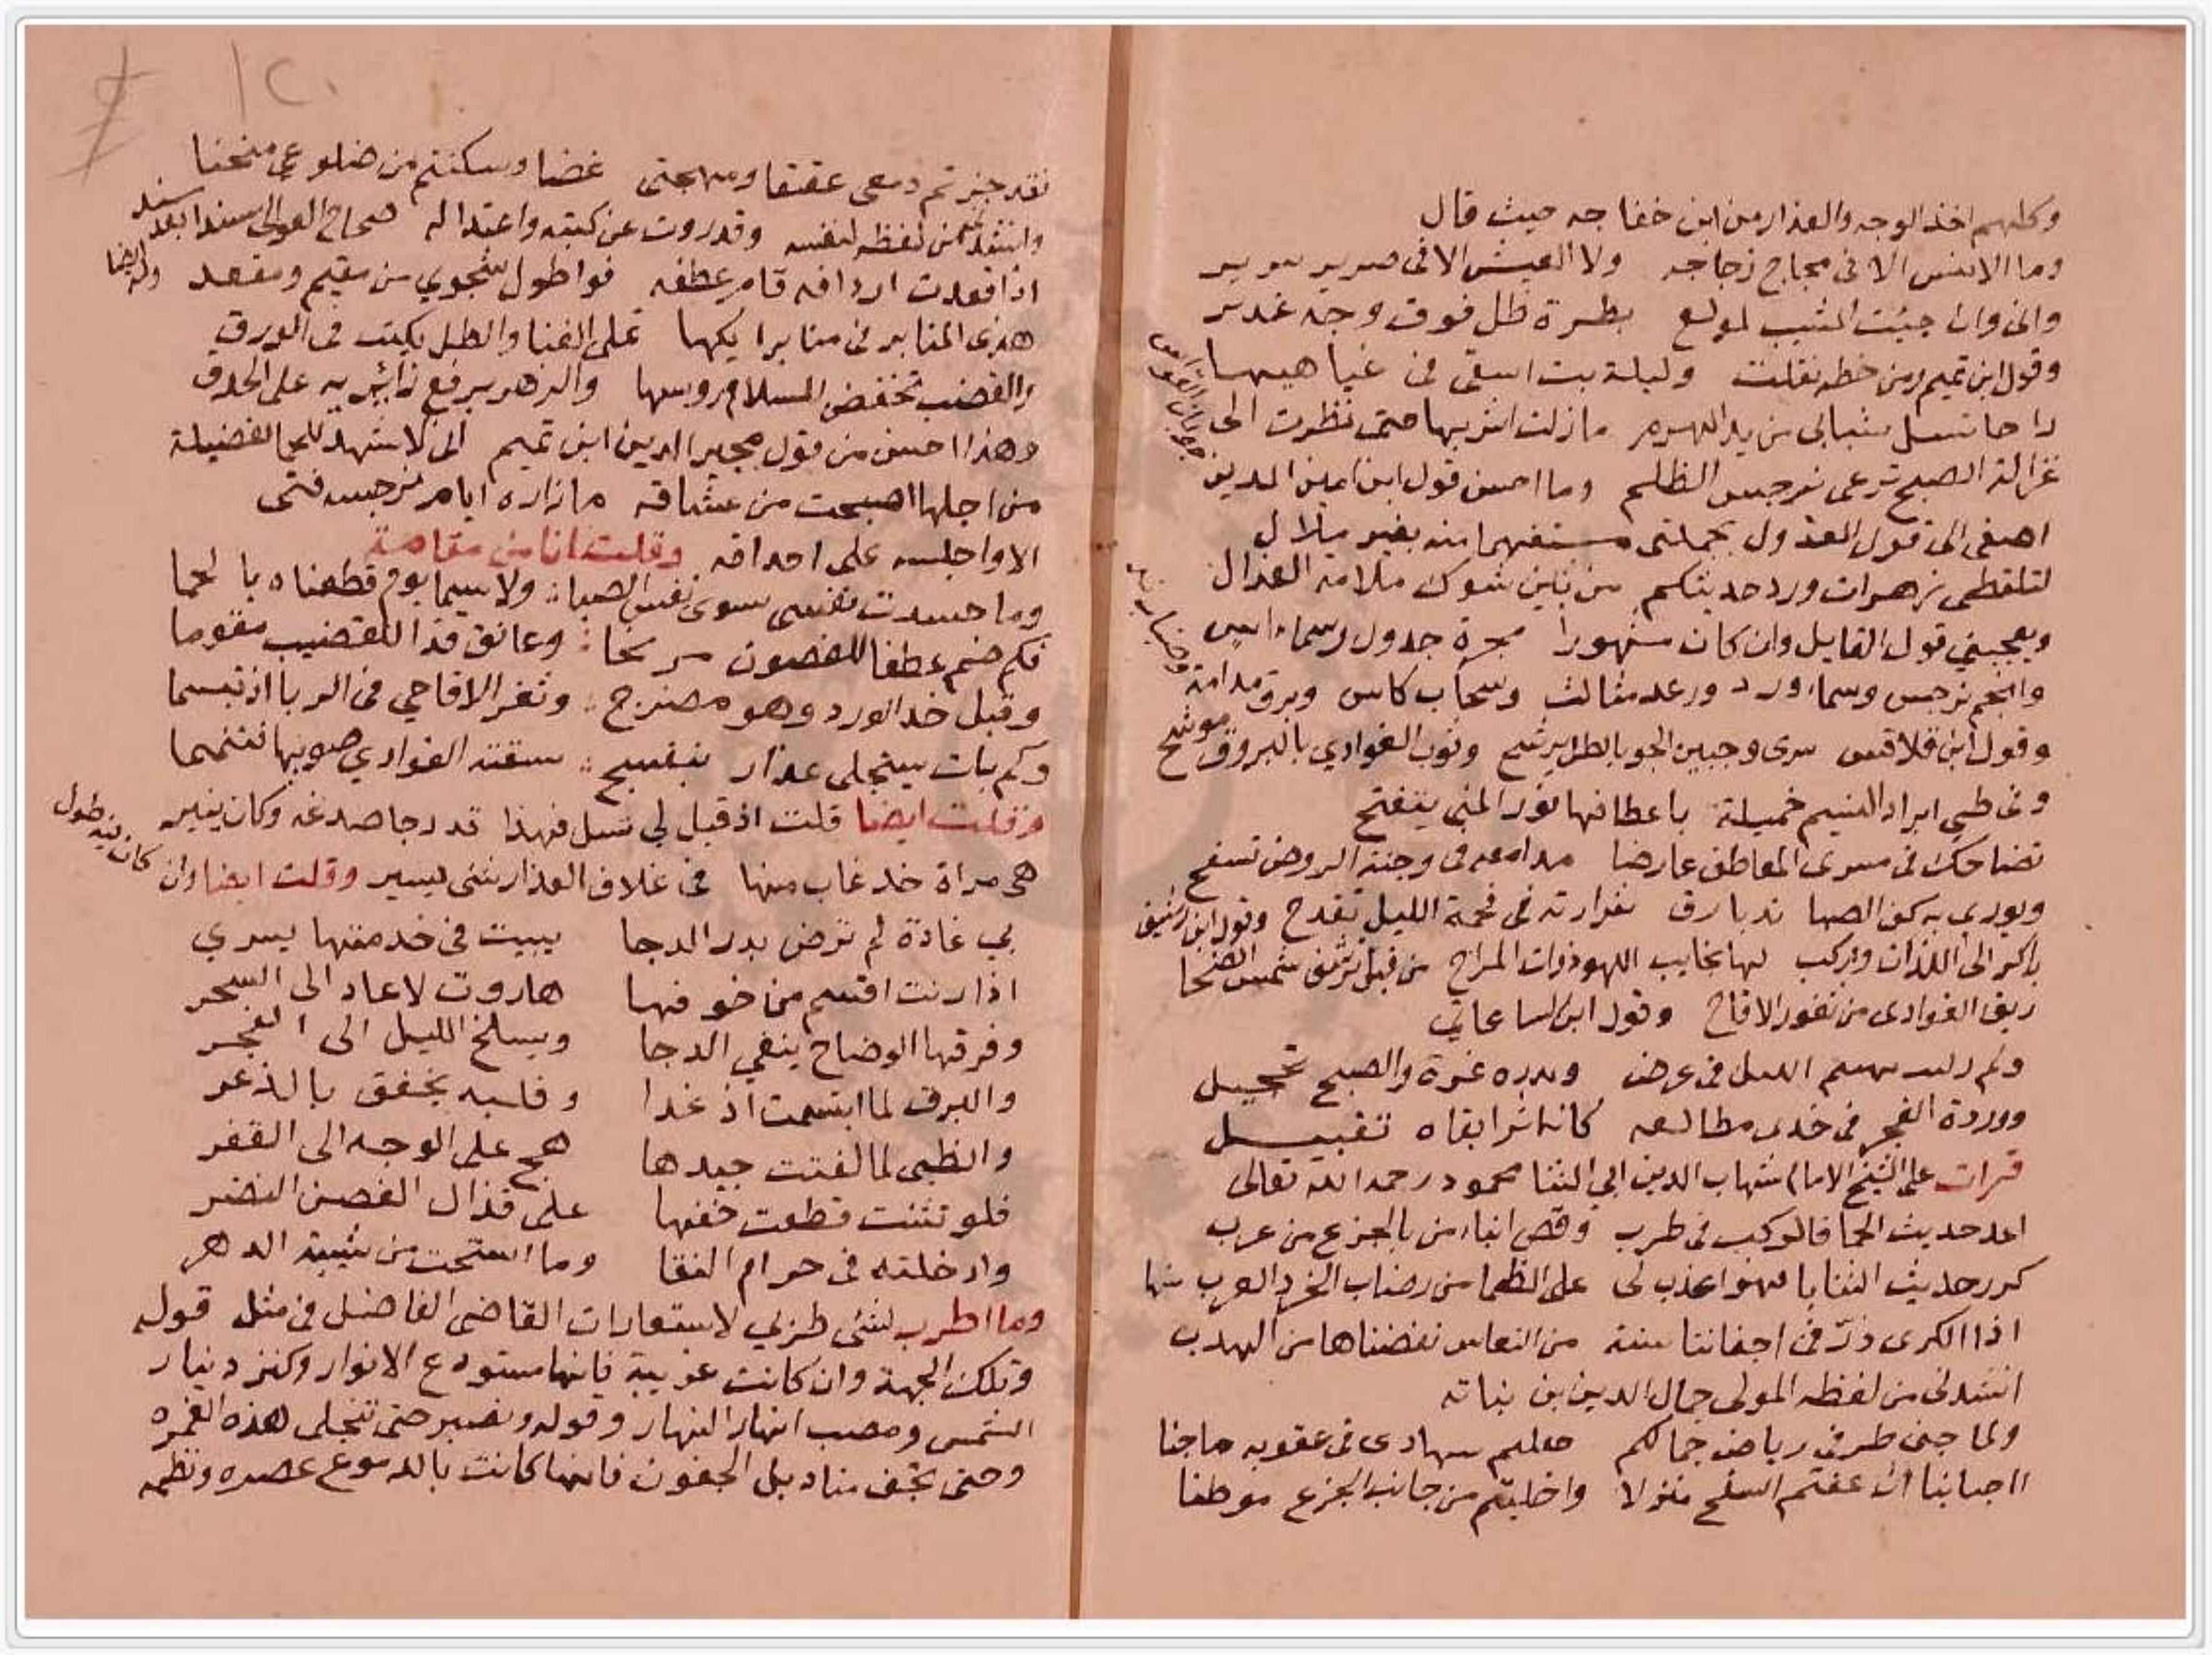 وكلهم اخذ الوجه والعذار من ابن خفاجه حيث قال
وما الانس الا فى مجاج زجاجه ولا العيش الا فى صرير سرير
وانى وان جئت المشيب لمولع بطرة ظل فوق وجه غدير
وقول ابن تميم ومن خطه نقلت وليلة بت اسقى فى غياهبها
راحا تسل شبابى من يد الهرم مازلت اشربها حتى نظرت الى
غزالة الصبح ترعى نرجس الظلم وما احسن قول ابن امين الدين
اصغى الى قول العذول بجملتى مستفهما منه بغير ملال
لتلقطى زهرات ورد حديثكم من بين شوك ملامة العذال
ويعجبني قول القايل وان كان مشهورا مجرة جدول وسماء اس
وانجم نرجس وسماء ورد ورعد مثالث وسحاب كاس وبرق مدامة
وقول ابن قلاقس سرى وجبين الجو بالطل يرشح وثوب الغوادي بالبروق موشح
وفى طى ابراد النسيم خميلة باعطافها نور المنى يتفتح
تضاحك فى مسرى المعاطف عارضا مدامعه فى وجنة الروض تسفح
ويورى به كف الصبا زند بارق شرارته فى فحمة الليل تقدح وقول ابن رشيق
باكر الى اللذات واركب لها نجايب اللهو ذوات المراح من قبل ترشف شمس الضحا
ريق الغوادى من ثغور الاقاح وقول ابن الساعاتي
ولم ليل بهيم الليل فى عرض وبدره غرة والصبح تحجيل
ووردة الفجر فى خدى مطالعه كانه اثر ابقاه تقبيل
قرات على الشيخ الامام شهاب الدين ابي الثنا محمود رحمه الله تعالى
اعد حديث الحما فالركب فى طرب وقص انباء من بالجزع من عرب
كرر حديث الثنايا فهو اعذب لى على الظما من رضاب الخرد العرب منها
اذا الكرى ذر فى اجفاننا سنة من النعاس نفضناها من الهدب
انشدنى من لفظه المولى جمال الدين بن نباته
ولما جنى طرفى رياض جمالكم جعلتم سهادى فى عقوبه ما جنا
ااحبابنا ان عفتم السفح منزلا واخليتم من جانب الجزع موطنا
١٢٠
فقد حزتم دمعى عقيقا ومهجتى غضا وسكنتم من ضلوعي منحنا
وانشدنى من لفظه لنفسه وقد روت عن كتبه واعتداله صحاح العوالى سندا بعد سند
اذا قعدت اردافه قام عطفه فوا طول شجوي من مقيم ومقعد وله ايضا
هذى المنابر فى منابرا يكها تملى الغنا والطل يكتب فى الورق
والقضب تخفض للسلام روسها والزهر يرفع زائريه على الحدق
وهذا احسن من قول مجير الدين ابن تميم انى لاشهد للحما لفضيلة
من اجلها اصبحت من عشاقه ما زاره ايام نرجسه فتى
الا واجلسه على احداقه وقلت انا من مقامة
وما حسدت نفسى سوى نفس الصبا ولا سيما يوم قطعناه بالحما
فكم ضم عطفا للغصون مرنحا وعانق قدا للقضيب مقوما
وقبل خد الورد وهو مضرج وثغر الاقاحي فى الربا اذ تبسما
وكم بات يستجلى عذار بنفسج سقته الغوادي صوبها فتنمما
وقلت ايضا قلت اذ قبل لي تسل فهذا قد دجا صدغه وكان ينير
هى مراة خد غاب منها فى غلاف العذار شى يسير وقلت ايضا وان كان فيه طول
بي غادة لم ترض بدر الدجا يبيت فى خدمتها يسري
اذا رنت اقسم من خوفها هاروت لا عاد الى السحر
وفرقها الوضاح ينفي الدجا ويسلخ الليل الى الفجر
والبرق لما ابتسمت اذ غدا وقلبه يخفق بالذعر
والظبى لما لفتت جيدها هج على الوجه الى القفر
فلو تثنت قطعت خفها على قذال الغصن النضر
وادخلته فى حرام النقا وما استحت من شيبة الدهر
وما اطرب لشى طربي لاستعارات القاضى الفاضل فى مثل قوله
وتلك الجهة وان كانت غريبة فانها مستودع الانوار وكنز دينار
الشمس ومصب انهار النهار وقوله ونصبر حتى تنجلى هذه الغمره
وحتى تجف مناديل الجفون فانها كانت بالدموع عصره ونظمه